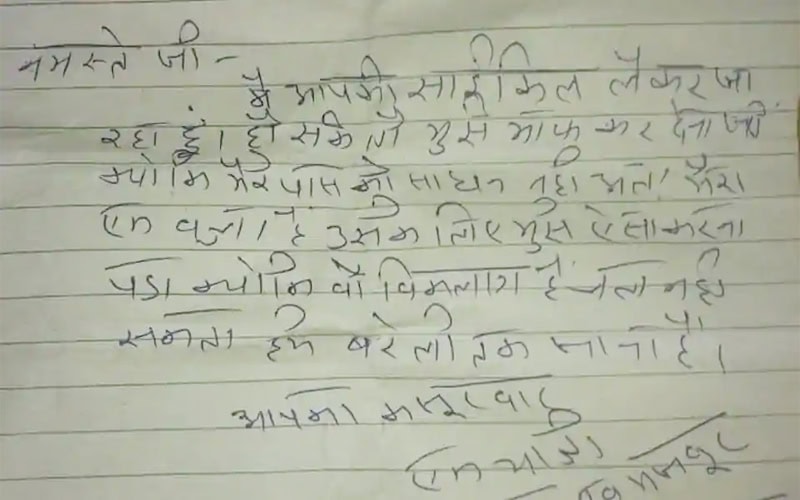 नमस्ते जी -
मै आपकी साईकिल लेकर जा
रहा हूं। हो सके तो मुझे माफ कर देना जी
क्योकि मेरे पास को साधन नही अत। मेरा
एक बच्चा है उसके लिए मुझे ऐसा करना
पडा क्योकि वो विकलांग है चल नही
सकता हमे बरेली तक जाना है।
आपका कसूरवार
एक यात्री
मजदूर